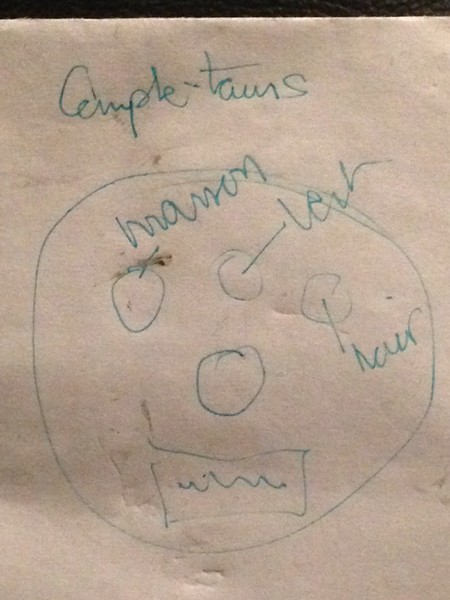 Compte-tours
marron
vert
noir